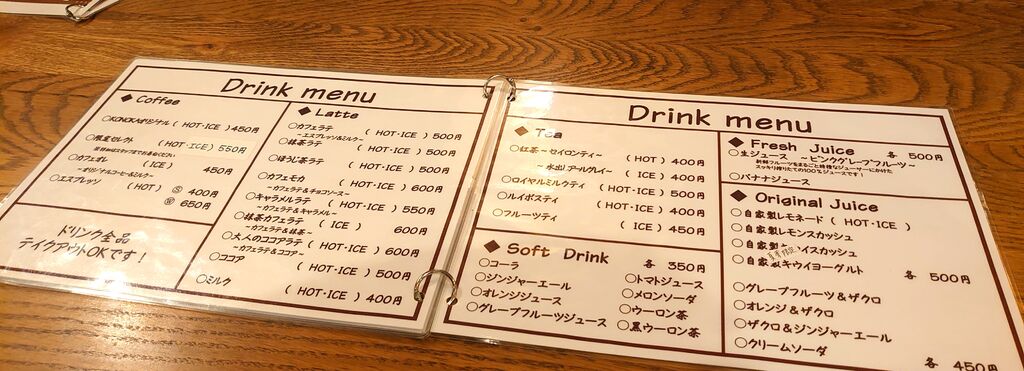 Drink menu
◆ Coffee
○KONOKAオリジナル ( HOT・ICE ) 450円
○限定セレクト ( HOT・ICE ) 550円
○カフェオレ ( ICE ) 450円
~オリジナルコーヒー&ミルク~
○エスプレッソ ( HOT ) Ⓢ 400円
Ⓦ 650円
ドリンク全品
テイクアウトOKです!
◆ Latte
○カフェラテ ( HOT・ICE ) 500円
~エスプレッソ&ミルク~
○抹茶ラテ ( HOT・ICE ) 500円
○ほうじ茶ラテ ( HOT・ICE ) 500円
○カフェモカ ( HOT・ICE ) 600円
~カフェラテ&チョコソース~
○キャラメルラテ ( HOT・ICE ) 550円
~カフェラテ&キャラメル~
○抹茶カフェラテ ( ICE ) 600円
~カフェラテ&抹茶~
○大人のココアラテ ( HOT・ICE ) 600円
~カフェラテ&ココア~
○ココア ( HOT・ICE ) 500円
○ミルク ( HOT・ICE ) 400円
Drink menu
◆ Tea
○紅茶~セイロンティ~ ( HOT ) 400円
~水出しアールグレイ~ ( ICE ) 400円
○ロイヤルミルクティ ( HOT・ICE ) 500円
○ルイボスティ ( HOT・ICE ) 400円
○フルーツティ ( ICE ) 450円
◆ Soft Drink 各 350円
○コーラ ○トマトジュース
○ジンジャーエール ○メロンソーダ
○オレンジジュース ○ウーロン茶
○グレープフルーツジュース ○黒ウーロン茶
◆ Fresh Juice 各 500円
○生ジュース ピンクグレープフルーツ~
新鮮フルーツをまるごと特殊なジューサーにかけた
スッキリ搾りたての100%ジュースです!
○バナナジュース
◆ Original Juice
○自家製レモネード ( HOT・ICE )
○自家製レモンスカッシュ
○自家製 イスカッシュ
○自家製キウイヨーグルト
各 500円
○グレープフルーツ&ザクロ
○オレンジ&ザクロ
○ザクロ&ジンジャーエール
○クリームソーダ
各 450円